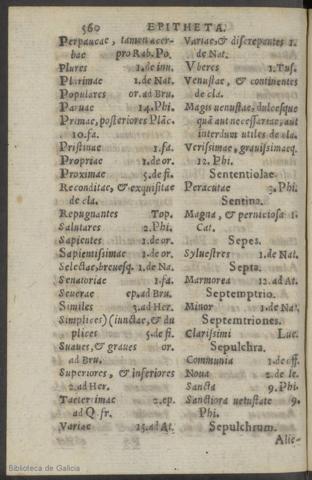 560 EPITHETA.
Perpaucae, tamen acer-
bae pro Rab. Po.
Plures 1. de inu.
Plurimae 1. de Nat.
Populares or. ad Bru.
Paruae 14. Phi.
Primae, posteriores Plãc.
10. fa.
Pristinae 1. fa.
Propriae 1. de or.
Proximae 5. de fi.
Reconditae, & exquisitae
de cla.
Repugnantes Top.
Salutares 2. Phi.
Sapientes 1. de or.
Sapientissimae 1. de or.
Selectae, breuesq. 1. de Na.
Senatoriae 1. fa.
Seuerae ep. ad Bru.
Similes 3. ad Her.
Simplices) (iunctae, & du
plices 5. de fi.
Suaues, & graues or.
ad Bru.
Superiores, & inferiores
2. ad Her.
Taeterrimae 2. ep.
ad Q. fr.
Variae 15. ad At.
Variae, & discrepantes 1.
de Nat.
Vberes 1. Tus.
Venustae, & continentes
de cla.
Magis venustae, dulcesque
quã aut necessariae, aut
interdum utiles de cla.
Verissimae, grauissimaeq.
12. Phi.
Sententiolae.
Peracutae 3. Phi.
Sentina.
Magna, & perniciosa 1.
Cat.
Sepes.
Syluestres 1. de Nat.
Septa.
Marmorea 12. ad At.
Septemptrio.
Minor 1. de Nat.
Septemtriones.
Clarissimi Luc.
Sepulchra.
Communia 1. de off.
Noua 2. de le.
Sancta 9. Phi.
Sanctiora vetustate 9.
Phi.
Sepulchrum.
Alie-
Biblioteca de Galicia